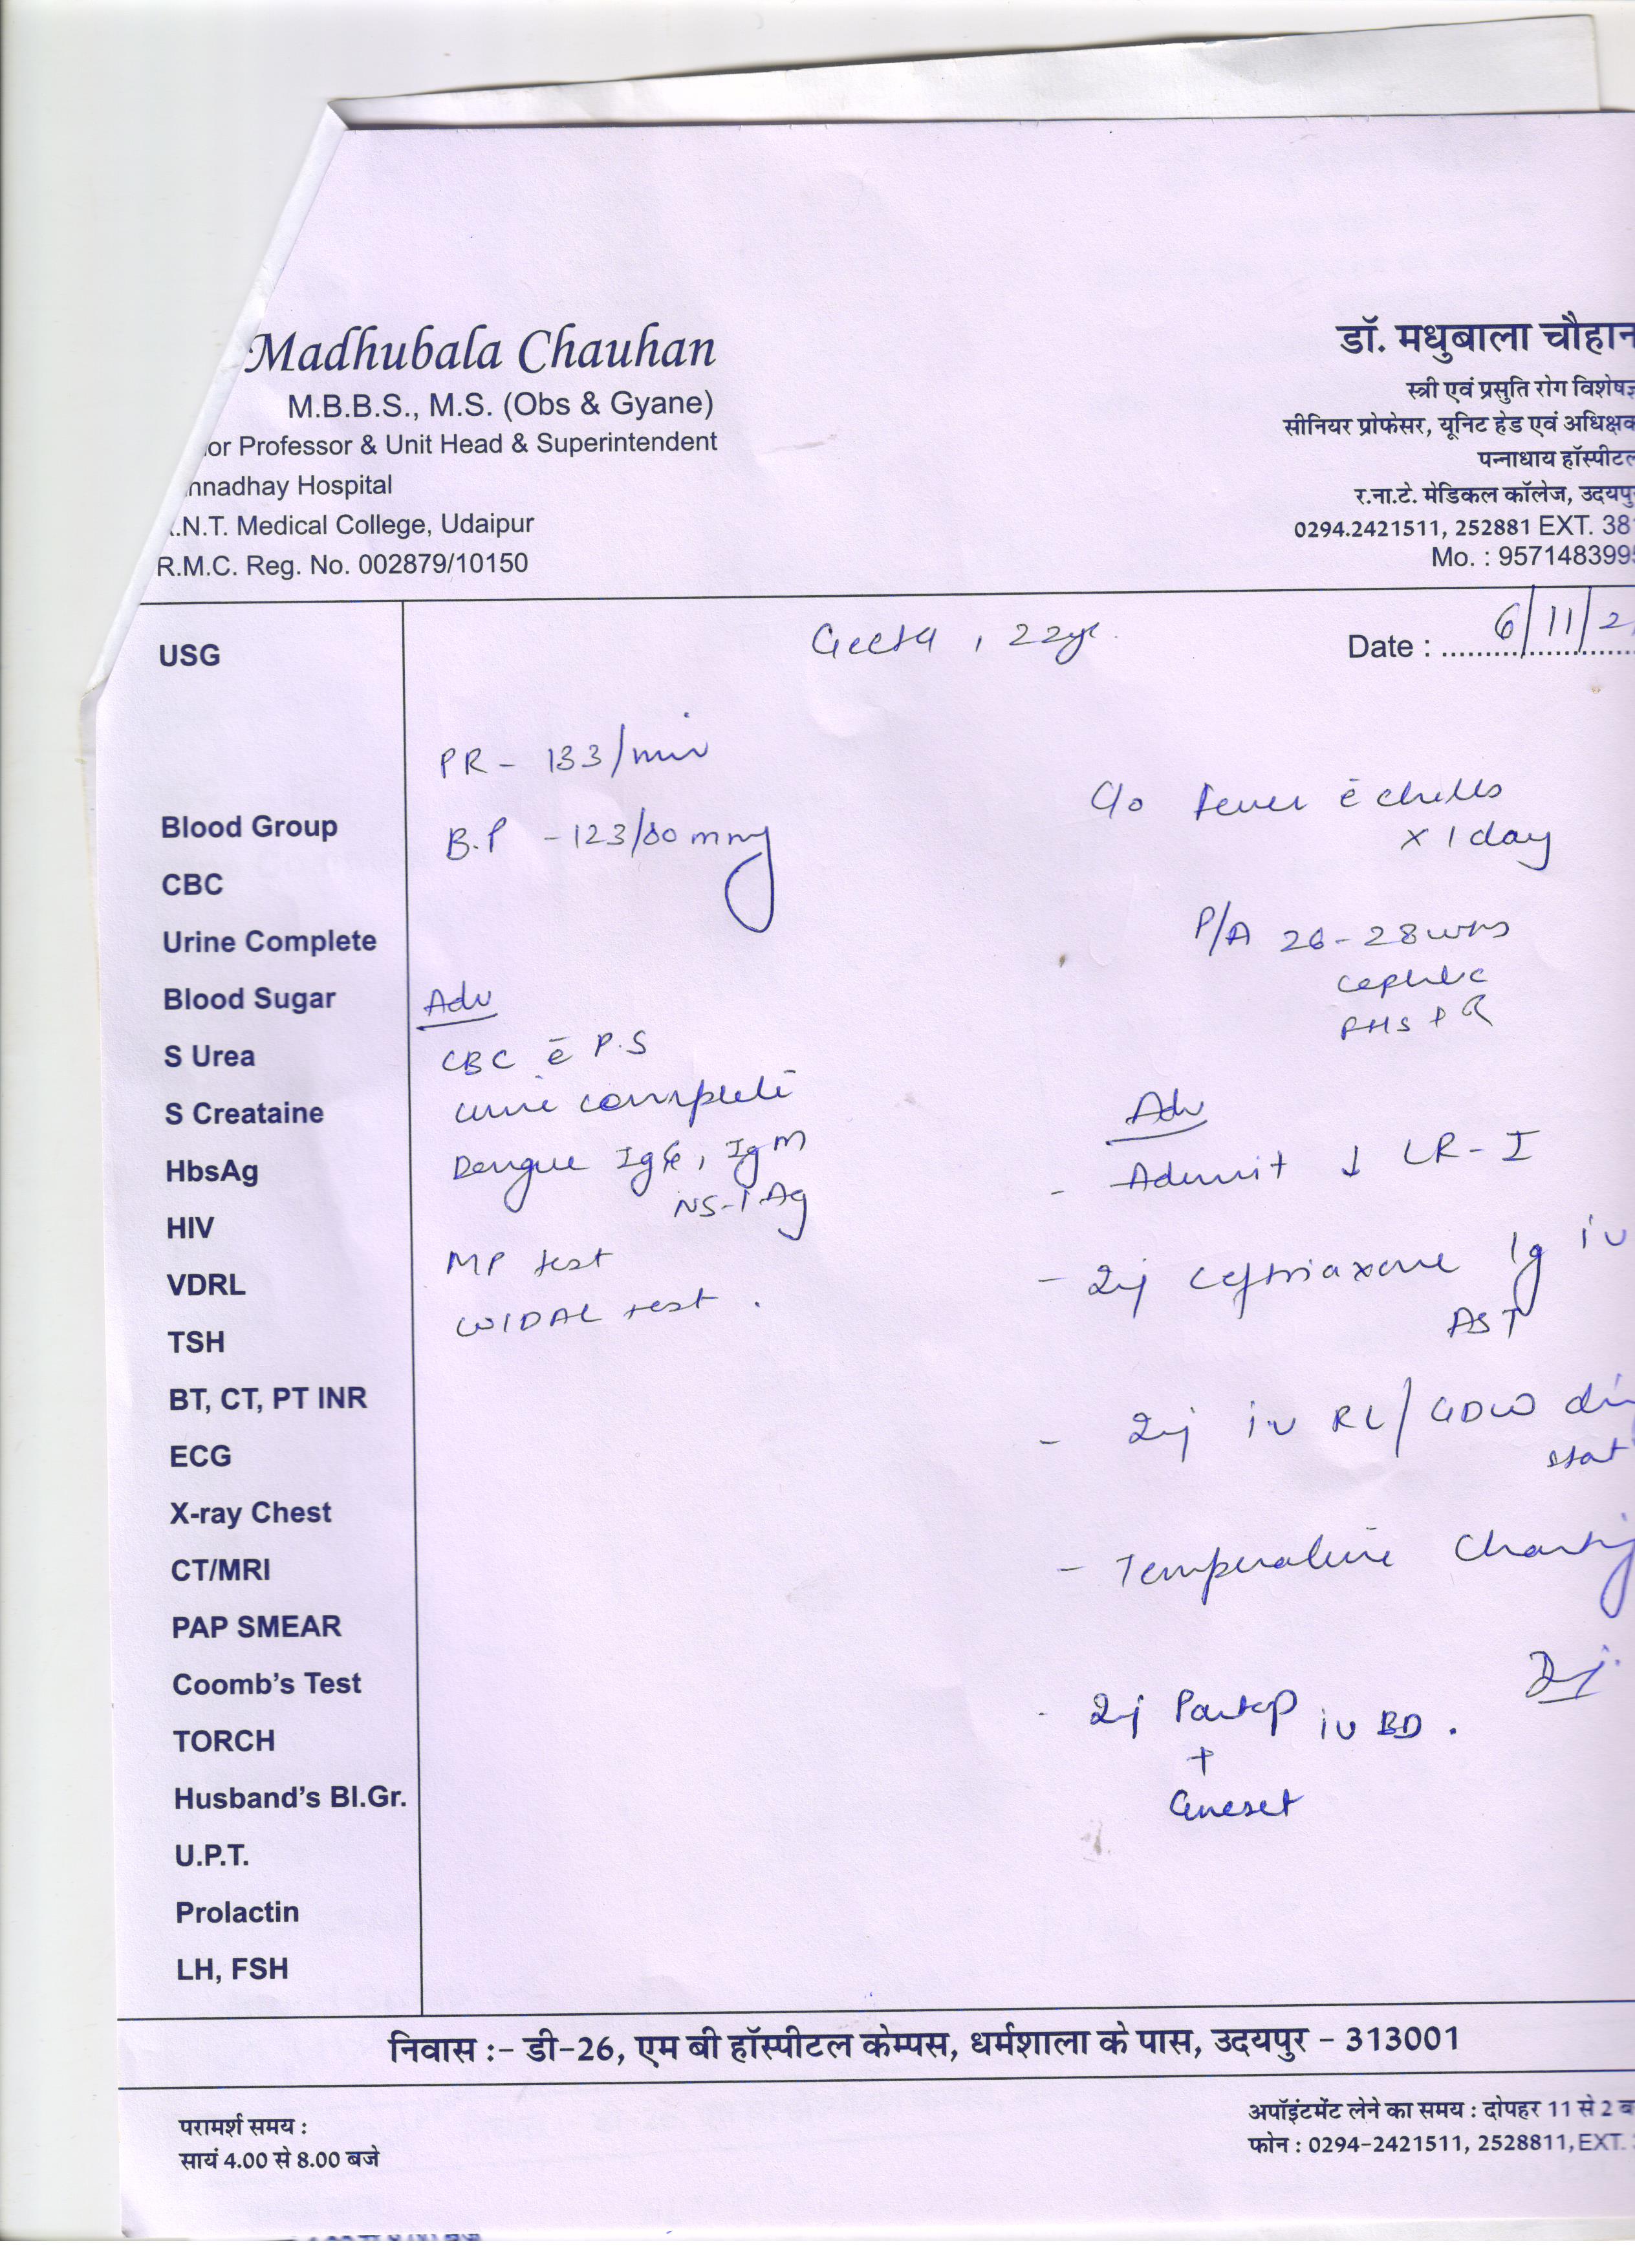 Madhubala Chauhan
M.B.B.S., M.S. (Obs & Gyane)
or Professor & Unit Head & Superintendent
nnadhay Hospital
.N.T. Medical College, Udaipur
R.M.C. Reg. No. 002879/10150
डॉ. मधुबाला चौहान
स्त्री एवं प्रसुति रोग विशेषज्ञ
सीनियर प्रोफेसर, यूनिट हेड एवं अधिक्षक
पन्नाधाय हॉस्पीटल
र.ना.टे. मेडिकल कॉलेज, उदयपु
0294.2421511, 252881 EXT. 38
Mo. : 957148399
Geeta , 22yr.
Date : 6/11/2
USG
Blood Group
CBC
Urine Complete
Blood Sugar
S Urea
S Creataine
HbsAg
HIV
VDRL
TSH
BT, CT, PT INR
ECG
X-ray Chest
CT/MRI
PAP SMEAR
Coomb's Test
TORCH
Husband's Bl.Gr.
U.P.T.
Prolactin
LH, FSH
PR - 133/min
B.P - 123/80 mmg
Adv
CBC c̄ P.S
urine complete
Dengue IgG, IgM
NS-1 Ag
MP test
WIDAL test .
C/o fever c̄ chills
x 1 day
P/A 26-28 wks
cephalic
FHS + R
Adv
- Admit ↓ LR-I
- Inj Ceftriaxone 1g iv
AST
- Inj iv RL/GDW
stat
- Temperature Charting
- Inj Pantop iv BD .
+
emeset
निवास :- डी-26, एम बी हॉस्पीटल केम्पस, धर्मशाला के पास, उदयपुर - 313001
परामर्श समय :
सायं 4.00 से 8.00 बजे
अपॉइंटमेंट लेने का समय : दोपहर 11 से 2 ब
फोन : 0294-2421511, 2528811, EXT.